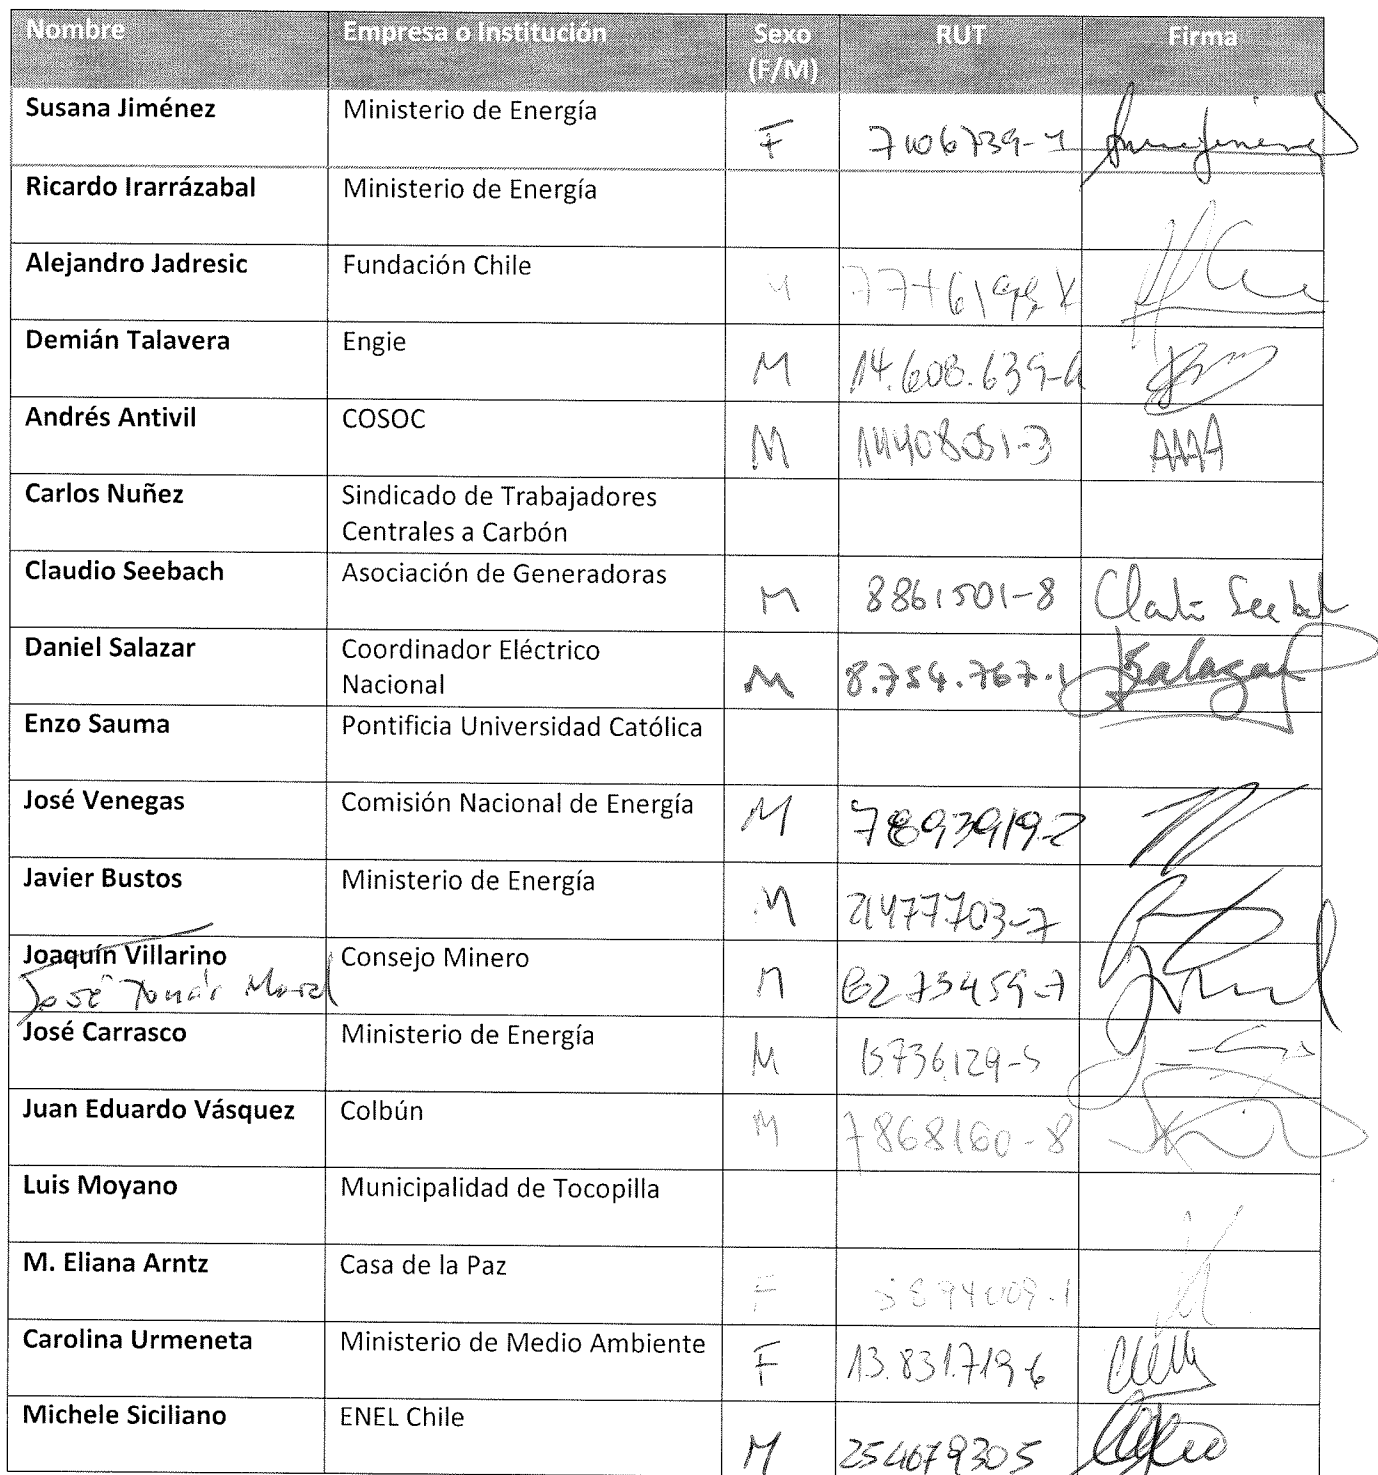 Nombre Empresa o Institución Sexo (F/M) RUT Firma
Susana Jiménez Ministerio de Energía F 7106739-1
Ricardo Irarrázabal Ministerio de Energía
Alejandro Jadresic Fundación Chile M
Demián Talavera Engie M
Andrés Antivil COSOC M 14408051-3 AAAA
Carlos Nuñez Sindicado de Trabajadores
Centrales a Carbón
Claudio Seebach Asociación de Generadoras M 8861501-8
Daniel Salazar Coordinador Eléctrico
Nacional M 8.754.767-1 Salazar
Enzo Sauma Pontificia Universidad Católica
José Venegas Comisión Nacional de Energía M 7893919-2
Javier Bustos Ministerio de Energía M 21477703-7
Joaquín Villarino Consejo Minero M
José Tomás Morel
José Carrasco Ministerio de Energía M 15736129-5
Juan Eduardo Vásquez Colbún M 7868160-8
Luis Moyano Municipalidad de Tocopilla
M. Eliana Arntz Casa de la Paz F
Carolina Urmeneta Ministerio de Medio Ambiente F 13.831.719-6
Michele Siciliano ENEL Chile M 254679305